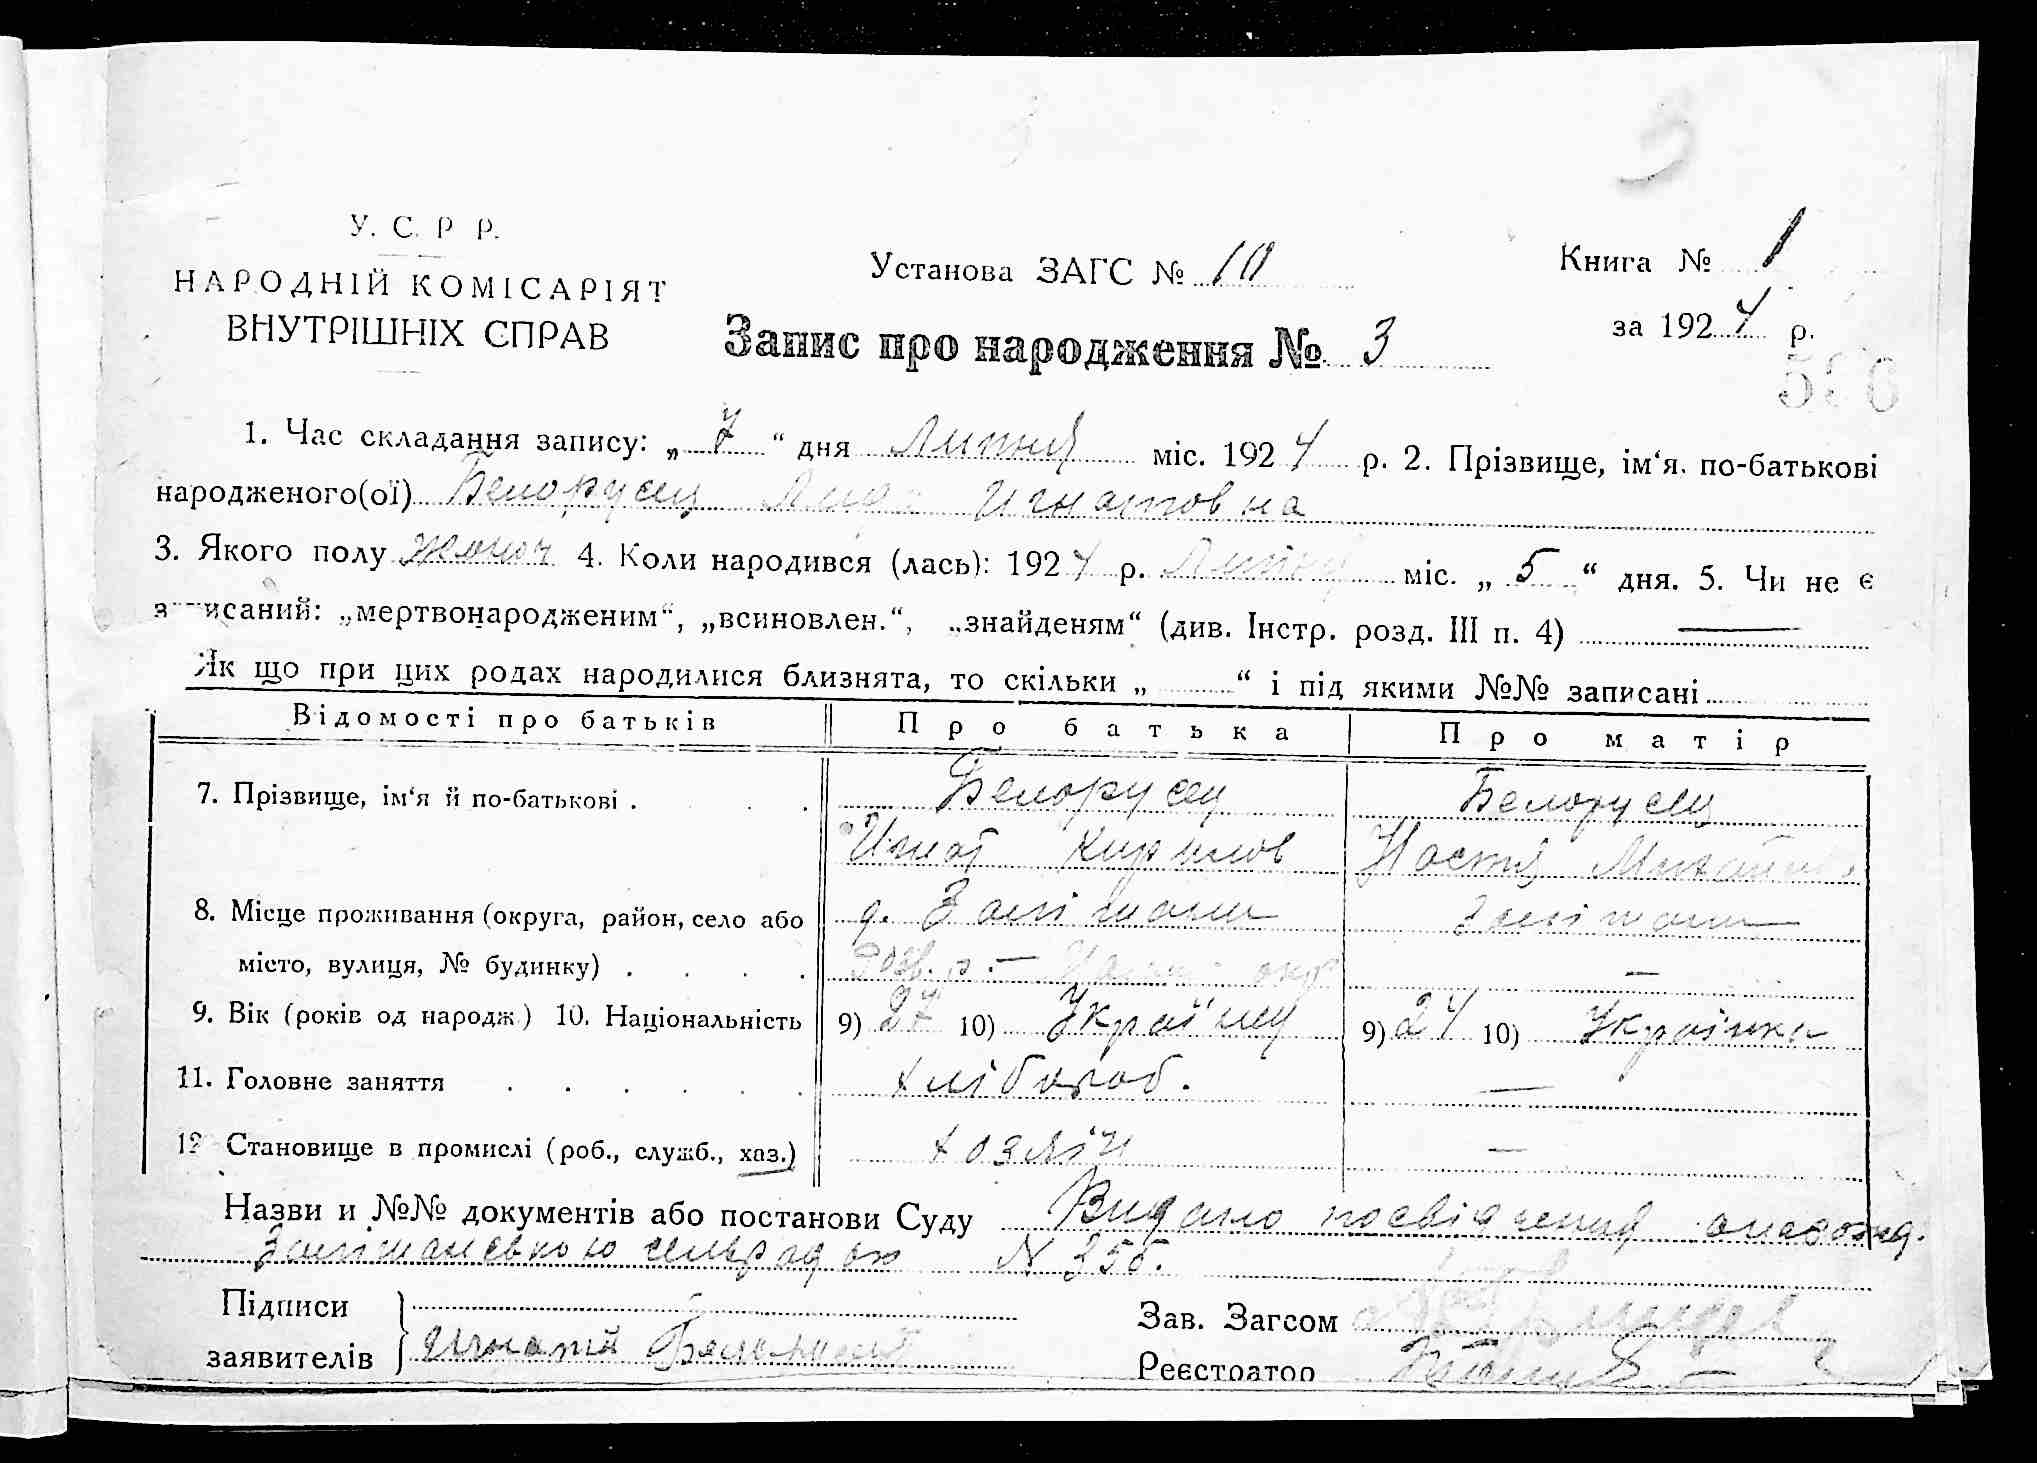 У. С. Р Р.
НАРОДНІЙ КОМІСАРІЯТ
ВНУТРІШНІХ СПРАВ
Установа ЗАГС № 10
Книга № 1
за 1924 р.
Запис про народження № 3
1. Час складання запису: „ 7 “ дня Липня міс. 1924 р. 2. Прізвище, ім‘я. по-батькові
народженого(ої) Белорусец Лида Игнатовна
3. Якого полу 4. Коли народився (лась): 1924 р. Липня міс. „ 5 “ дня. 5. Чи не є
записаний: „мертвонародженим“, „всиновлен.“, „знайденям“ (див. Інстр. розд. III п. 4) —
Як що при цих родах народилися близнята, то скільки „ “ і під якими №№ записані
Відомості про батьків Про батька Про матір
7. Прізвище, ім‘я й по-батькові . . . . Белорусец Белорусец
Игнат Кирилов Настя
8. Місце проживання (округа, район, село або
місто, вулиця, № будинку) . . . . —
9. Вік (років од народж.) 10. Національність 9) 27 10) Українец 9) 24 10) Українка
11. Головне заняття . . . . . . хлібороб. —
12 Становище в промислі (роб., служб., хаз.) хозяін —
Назви и №№ документів або постанови Суду Видано посвідчення
сельрадою № 356.
Підписи
заявителів Игнатий
Зав. Загсом
Реєстратор